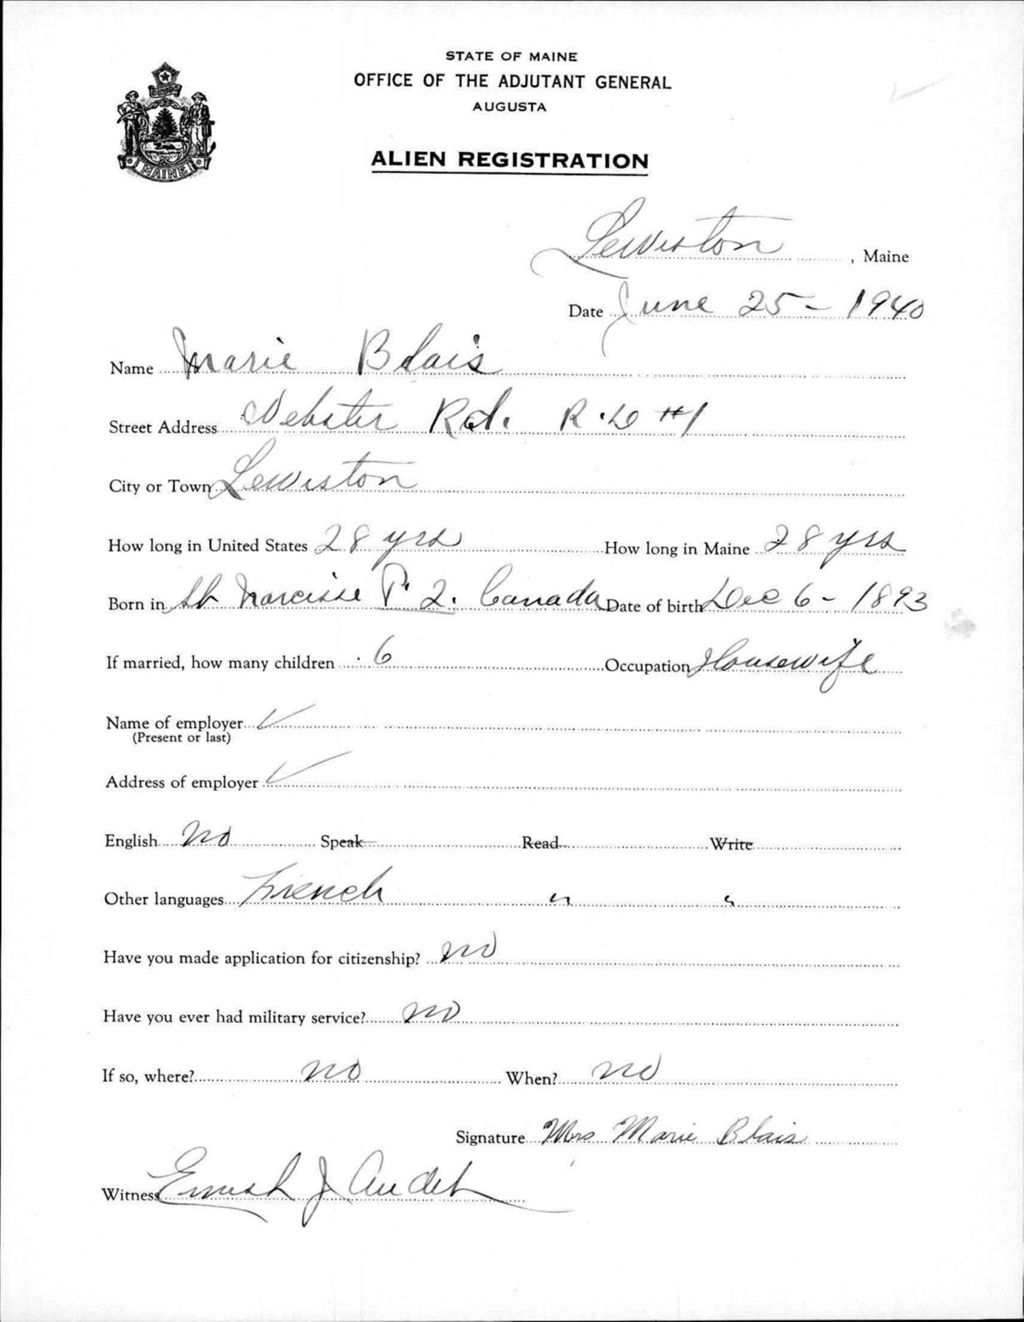 STATE OF MAINE
OFFICE OF THE ADJUTANT GENERAL
AUGUSTA
ALIEN REGISTRATION
MAINE
Lewiston, Maine
Date June 25 - 1940
Name Marie Blais
Street Address Webster Rd. R.D #1
City or Town Lewiston
How long in United States 28 yrs How long in Maine 28 yrs
Born in St Narcisse P.Q. Canada Date of birth Dec 6 - 1893
If married, how many children 6 Occupation Housewife
Name of employer ✓
(Present or last)
Address of employer ✓
English No Speak Read Write
Other languages French " "
Have you made application for citizenship? no
Have you ever had military service? no
If so, where? no When? no
Signature Mrs Marie Blais
Witness J Audet